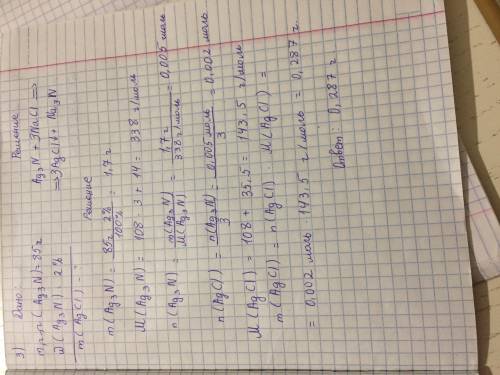 3) Дано:
m р-ра (Ag₃N) = 85 г
ω (Ag₃N) = 2%
m (AgCl) - ?
Решение
Ag₃N + 3NaCl ⇒
⇒ 3AgCl↓ + Na₃N
Решение
m (Ag₃N) = 85 г · 2% / 100% = 1,7 г
M (Ag₃N) = 108 · 3 + 14 = 338 г/моль
n (Ag₃N) = m(Ag₃N) / M(Ag₃N) = 1,7 г / 338 г/моль = 0,005 моль
n (AgCl) = n(Ag₃N) / 3 = 0,005 моль / 3 = 0,002 моль
M (AgCl) = 108 + 35,5 = 143,5 г/моль
m (AgCl) = n (AgCl) · M (AgCl) =
= 0,002 моль · 143,5 г/моль = 0,287 г.
Ответ: 0,287 г